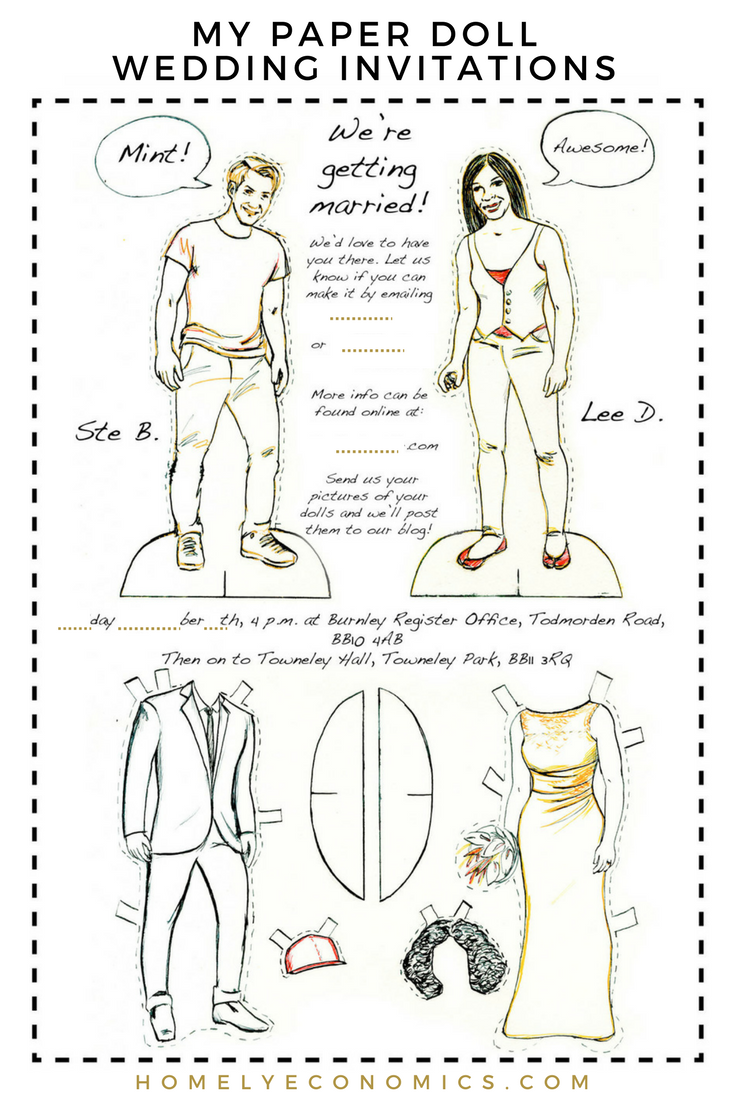 MY PAPER DOLL
WEDDING INVITATIONS
Mint!
We're
getting
married!
Awesome!
We'd love to have
you there. Let us
know if you can
make it by emailing
..............
or ..............
More info can be
found online at:
.............. .com
Ste B.
Lee D.
Send us your
pictures of your
dolls and we'll post
them to our blog!
.......day ............ber .....th, 4 p.m. at Burnley Register Office, Todmorden Road,
BB10 4AB
Then on to Towneley Hall, Towneley Park, BB11 3RQ
HOMELYECONOMICS.COM